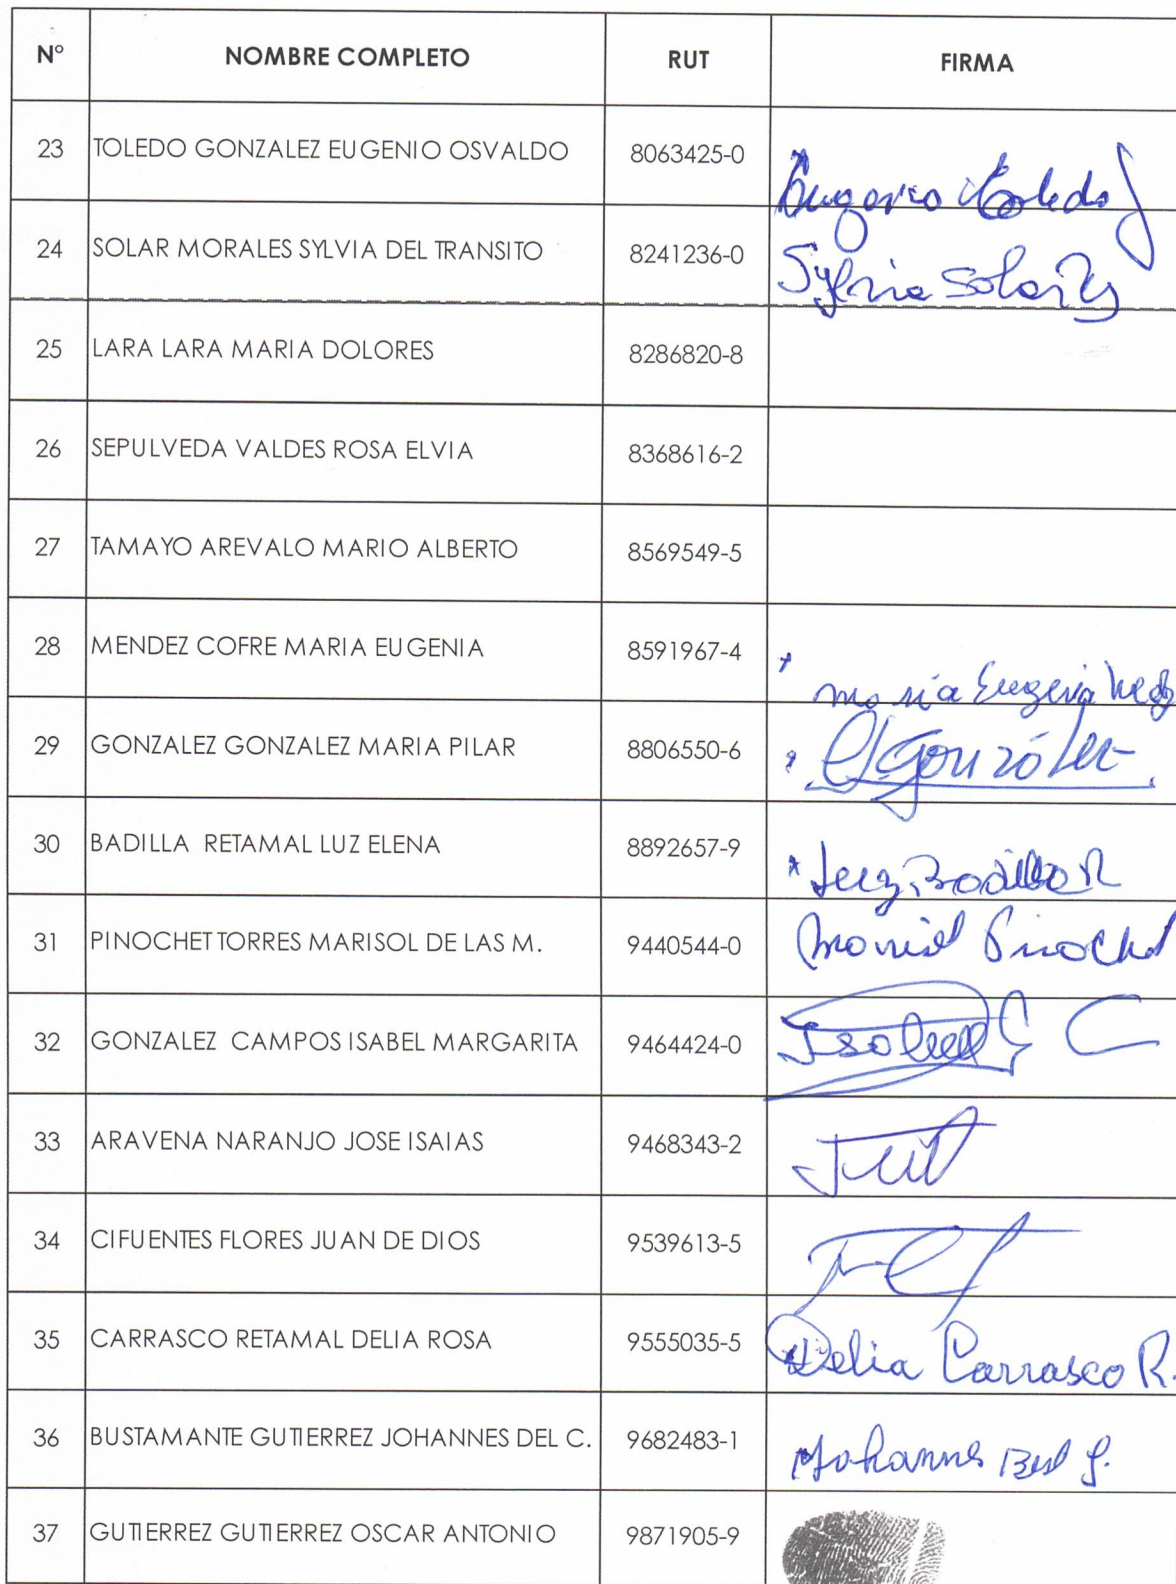 N° NOMBRE COMPLETO RUT FIRMA
23 TOLEDO GONZALEZ EUGENIO OSVALDO 8063425-0 Eugenio Toledo
24 SOLAR MORALES SYLVIA DEL TRANSITO 8241236-0 Sylvia Solar
25 LARA LARA MARIA DOLORES 8286820-8
26 SEPULVEDA VALDES ROSA ELVIA 8368616-2
27 TAMAYO AREVALO MARIO ALBERTO 8569549-5
28 MENDEZ COFRE MARIA EUGENIA 8591967-4 maria Eugenia
29 GONZALEZ GONZALEZ MARIA PILAR 8806550-6 González
30 BADILLA RETAMAL LUZ ELENA 8892657-9 Luz Badilla R
31 PINOCHET TORRES MARISOL DE LAS M. 9440544-0 Marisol Pinochet
32 GONZALEZ CAMPOS ISABEL MARGARITA 9464424-0 Isabel G C
33 ARAVENA NARANJO JOSE ISAIAS 9468343-2
34 CIFUENTES FLORES JUAN DE DIOS 9539613-5
35 CARRASCO RETAMAL DELIA ROSA 9555035-5 Delia Carrasco R.
36 BUSTAMANTE GUTIERREZ JOHANNES DEL C. 9682483-1 Johannes Bust G.
37 GUTIERREZ GUTIERREZ OSCAR ANTONIO 9871905-9